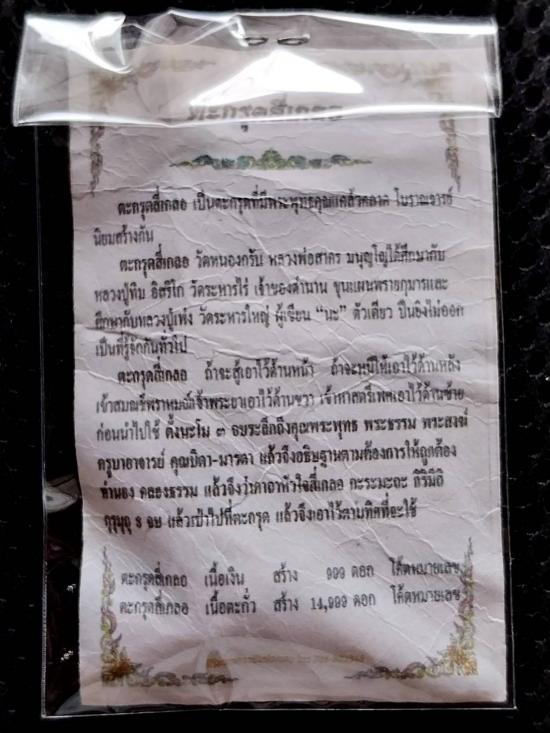 ตะกรุดสี่เกลอ
ตะกรุดสี่เกลอ เป็นตะกรุดที่มีพระพุทธคุณแคล้วคลาด โบราณจารย์
นิยมสร้างกัน
ตะกรุดสี่เกลอ วัดหนองกรับ หลวงพ่อสาคร มนุญโญได้ศึกษากับ
หลวงปู่ทิม อิสริโก วัดระหารไร่ เจ้าของตำนาน ขุนแผนพรายกุมารและ
ศึกษากับหลวงปู่เพ่ง วัดระหารใหญ่ ผู้เขียน "นะ" ตัวเดียว ปืนยิงไม่ออก
เป็นที่รู้จักกันทั่วไป
ตะกรุดสี่เกลอ ถ้าจะสู้เอาไว้ด้านหน้า ถ้าจะหนีให้เอาไว้ด้านหลัง
เข้าสมณะพราหมณ์เจ้าพระยาเอาไว้ด้านขวา เข้าหาสตรีเพศเอาไว้ด้านซ้าย
ก่อนนำไปใช้ ตั้งนะโม ๓ จบระลึกถึงคุณพระพุทธ พระธรรม พระสงฆ์
ครูบาอาจารย์ คุณบิดา-มารดา แล้วจึงอธิษฐานตามต้องการให้ถูกต้อง
ทำนอง คลองธรรม แล้วจึงว่าคาถาหัวใจสี่เกลอ กะระมะถะ กิริมิถิ
กุรุมุถุ ๓ จบ แล้วเป่าไปที่ตะกรุด แล้วจึงเอาไว้ตามทิศที่จะใช้
ตะกรุดสี่เกลอ เนื้อเงิน สร้าง 999 ดอก โค้ดหมายเลข
ตะกรุดสี่เกลอ เนื้อตะกั่ว สร้าง 14,999 ดอก โค้ดหมายเลข